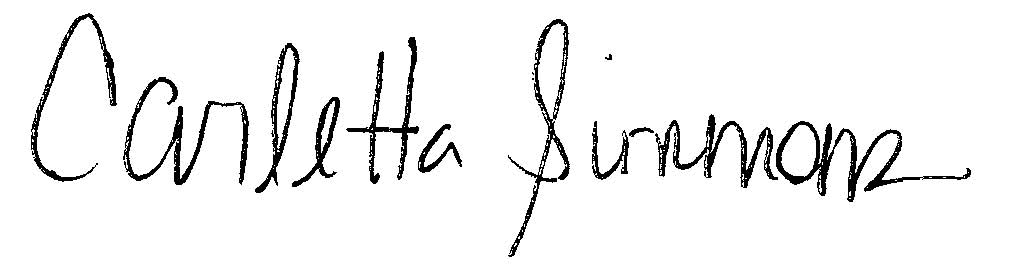 Carletta Simmons